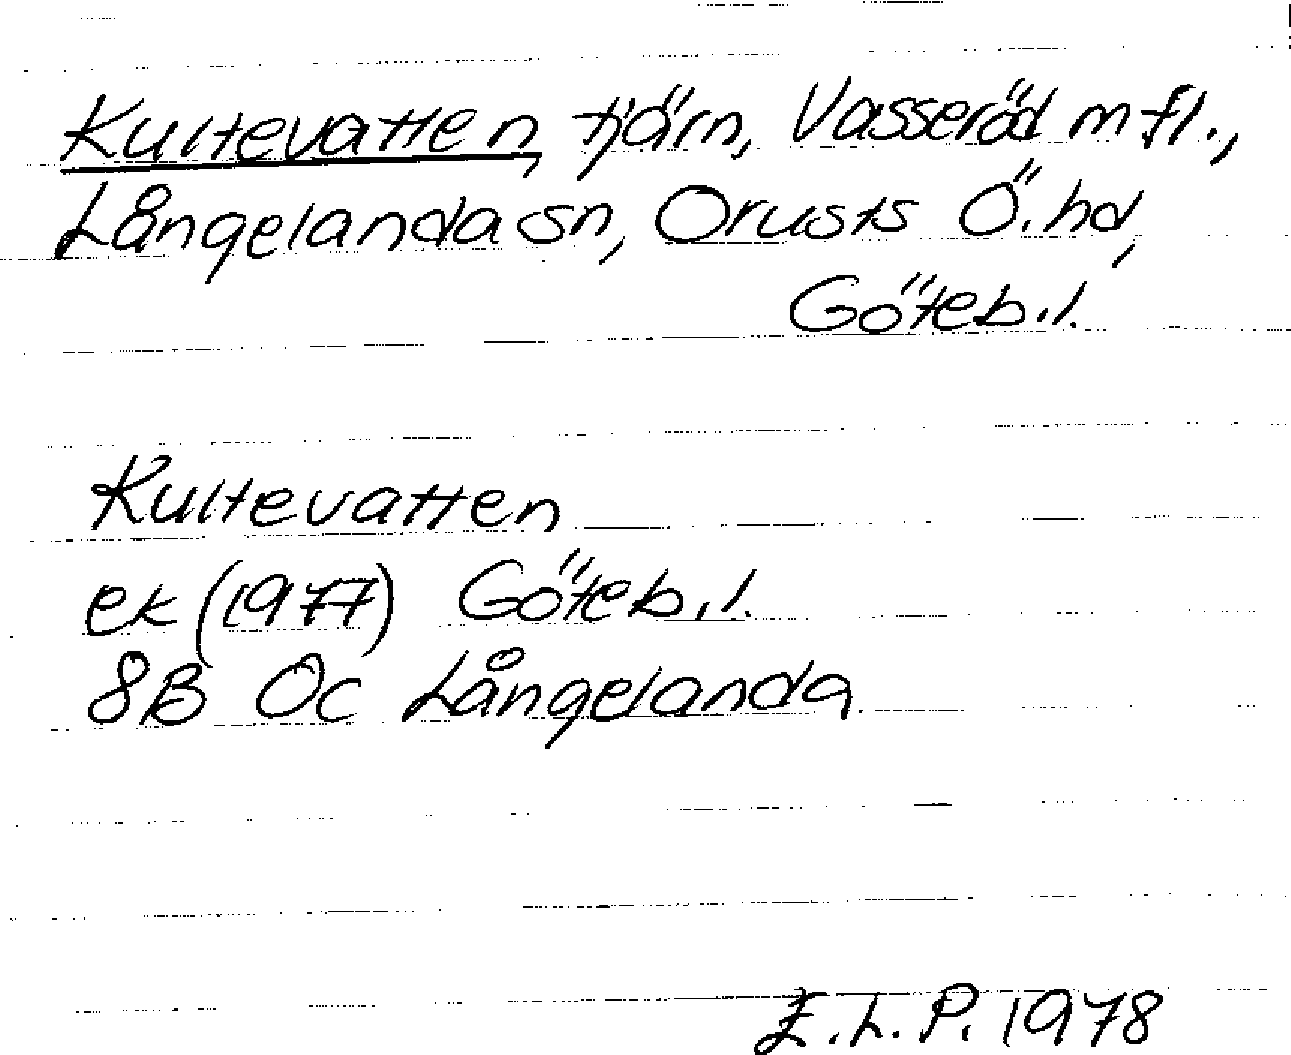 Kultevatten, tjärn, Vasseröd m fl.,
Långelanda sn, Orusts Ö. hd,
Göteb. l.
Kultevatten
ek (1977) Göteb. l.
8B 0c Långelanda
E. L. P. 1978